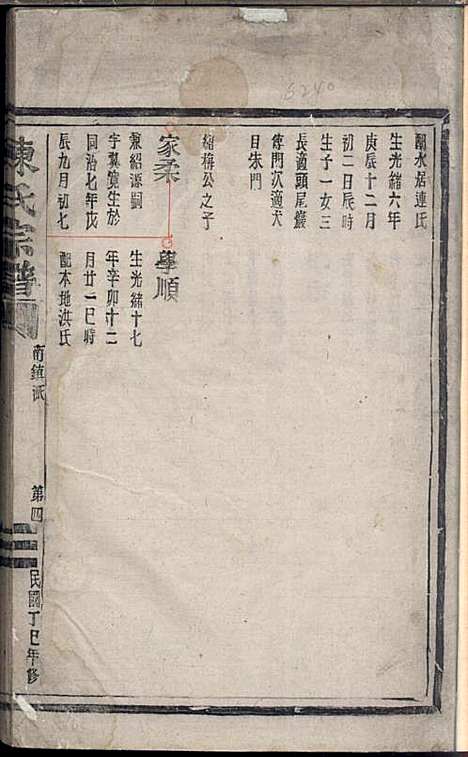 6240
翻水居連氏
生光緒六年
庚辰十二月
初二日辰時
生子一女三
長適頭尾嚴
傳門次適犬
目朱門
紹梅公之子
家柔
兼紹源嗣
字翼寬生於
同治七年戊
辰九月初七
學順
生光緒十七
年辛卯十二
月廿一巳時
配本地洪氏
陳氏宗譜
南鎮派
第四
民國丁巳年修